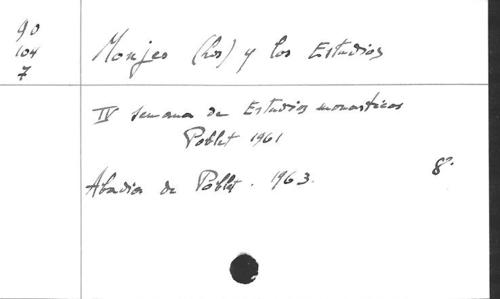 90
104
7
Monjes (Los) y los Estudios
IV semana de Estudios monasticos
Poblet 1961
Abadia de Poblet. 1963.
8º.